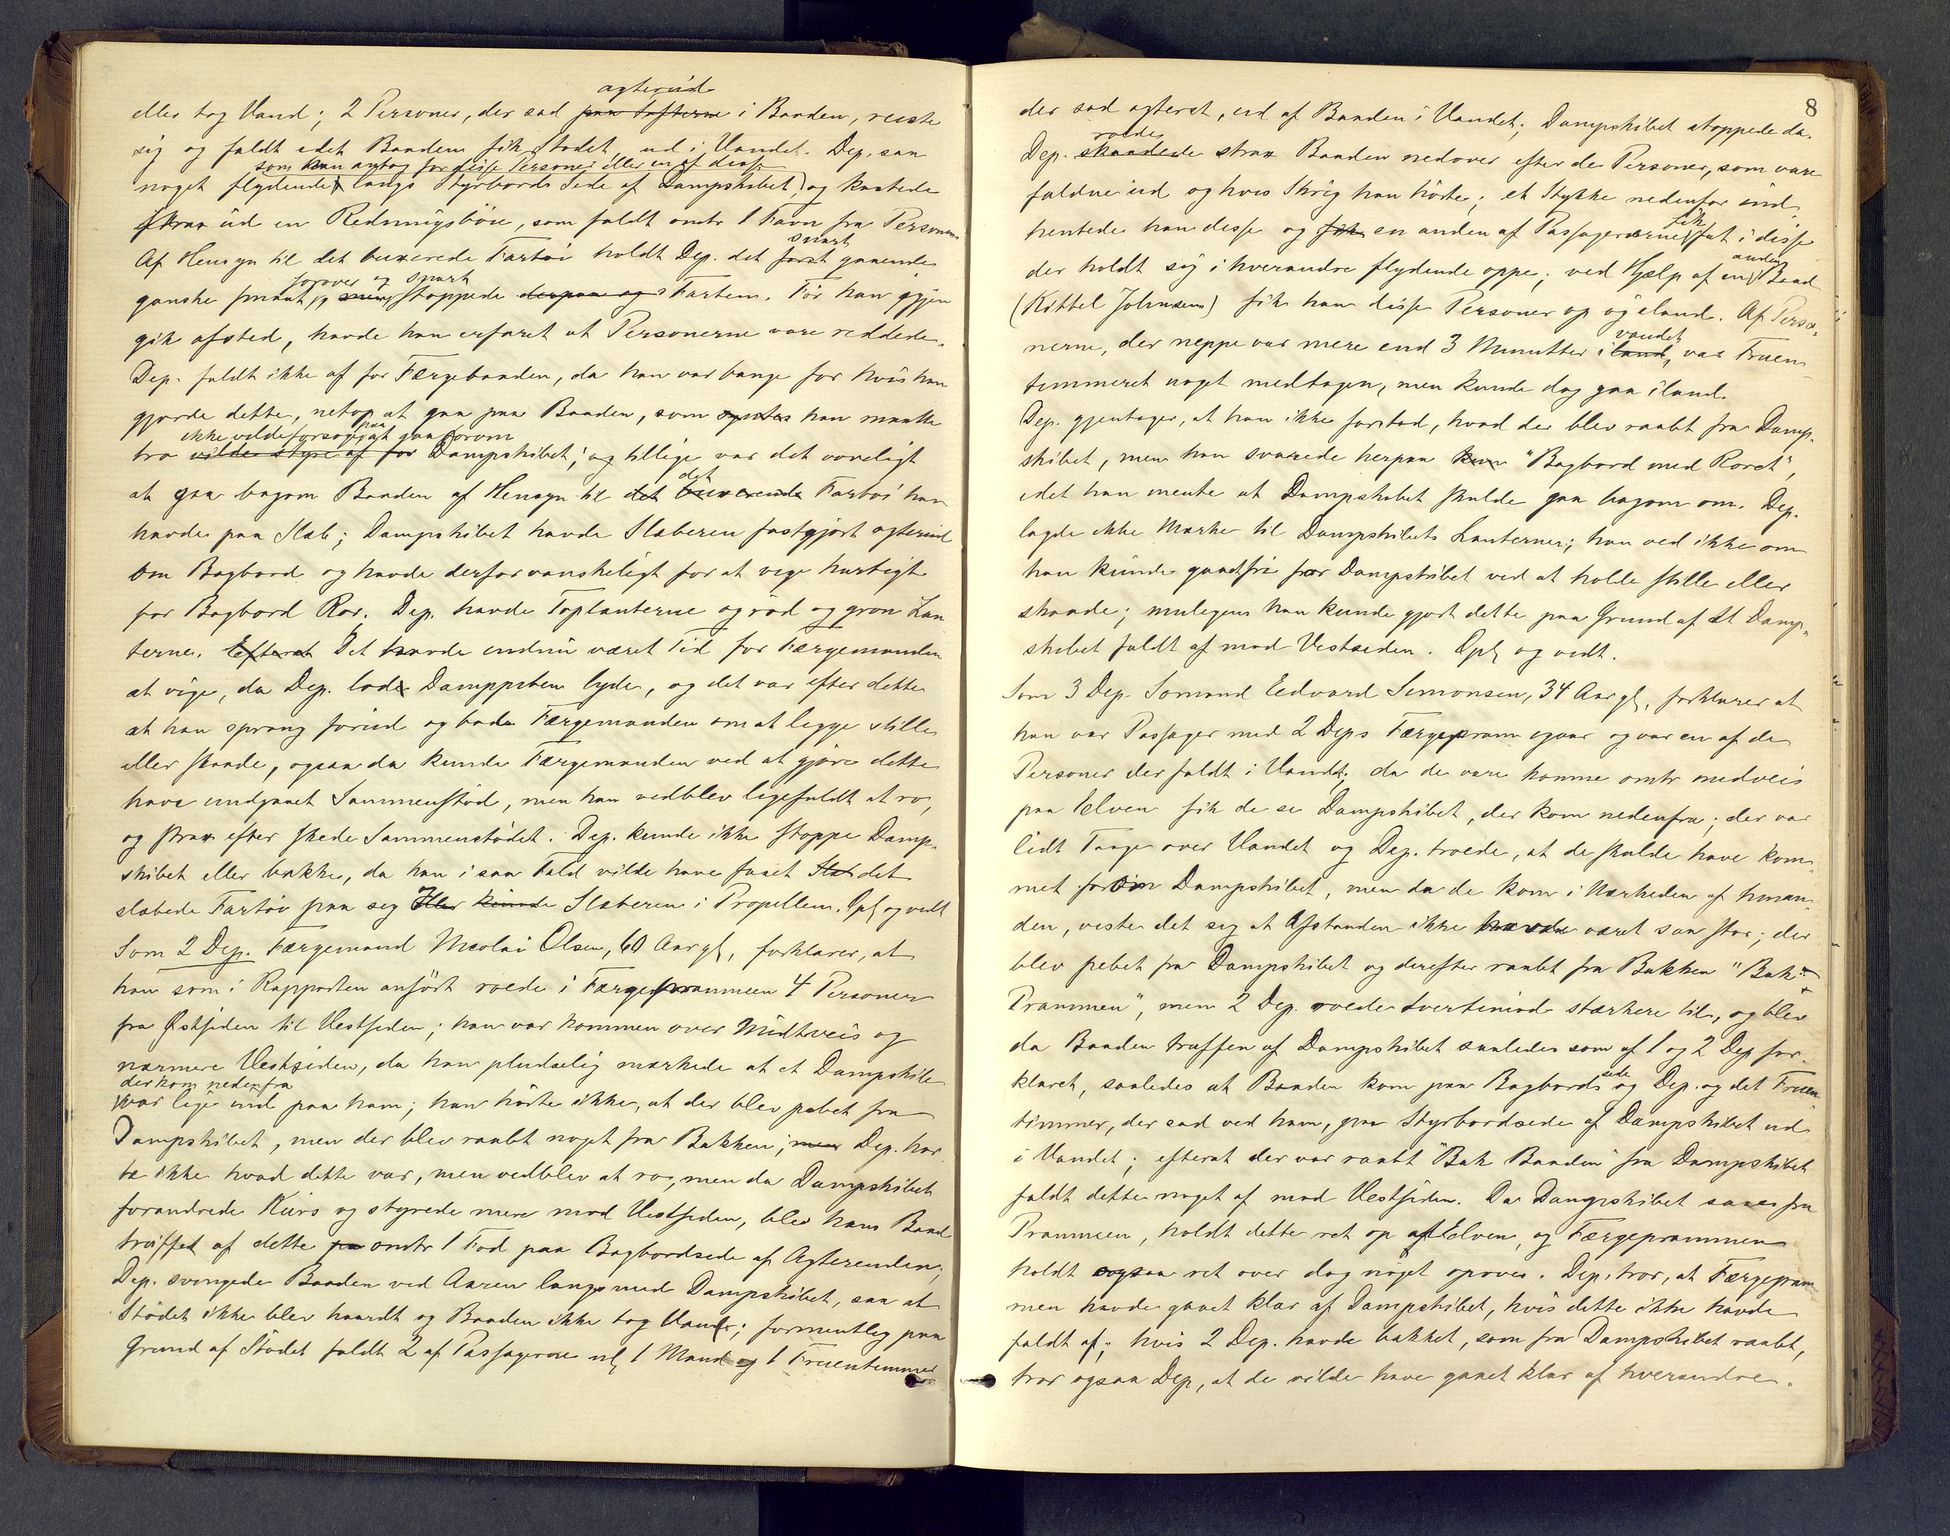 agterud
eller tog Vand; 2 Personer, der sad paa Tofterne i Baaden, reiste
sig og faldt idet Baaden fik Stødet, ud i Vandet. Dep. saa
som han antog for disse Personer eller en af disse
noget flydende langs Styrbords Side af Dampskibet, og kastede
strax ud en Redningsbøie, som faldt omtr 1 Favn fra Personen.
snart
Af Hensyn til det buxerede Fartøi holdt Dep. det først gaaende
forover og snart
ganske smaat, stoppede derpaa og Farten. Før han igjen
gik afsted, havde han erfaret at Personerne vare reddede.
Dep. faldt ikke af for Færgebaaden, da han var bange for hvis han
gjorde dette, netop at gaa paa Baaden, som syntes han maatte
ikke vilde forsøge paa at gaa forom
tro vilde styre af for Dampskibet; og tillige var det voveligt
det
at gaa bagom Baaden af Hensyn til det buxerende Fartøi han
havde paa Slæb; Dampskibet havde Slæberen fastgjort agterud
om Bagbord og havde derfor vanskeligt for at vige hurtigt
for Bagbord Ror. Dep. havde Toplanterne og rød og grøn Lan
terne. Efterat Det havde endnu været Tid for Færgemanden
at vige, da Dep. lod Damppiben lyde, og det var efter dette
at han sprang forud og bad Færgemanden om at ligge stille
eller skaade, ogsaa da kunde Færgemanden ved at gjøre dette
have undgaaet Sammenstød, men han vedblev ligefuldt at ro,
og strax efter skede Sammenstødet. Dep. kunde ikke stoppe Damp-
skibet eller bakke, da han i saa Fald vilde have faaet det
slæbede Fartøi paa sig Eller kunde Slæberen i Propellen. Opl. og vedt
Som 2 Dep. Færgemand Nicolai Olsen, 60 Aar gl, forklarer, at
han som i Rapporten anført roede i Færgeprammen 4 Personer
fra Østsiden til Vestsiden; han var kommen over Midtveis og
nærmere Vestsiden, da han pludselig mærkede at et Dampskib
der kom nedenfra
var lige ind paa ham; han hørte ikke, at der blev pebet fra
Dampskibet, men der blev raabt noget fra Bakken; men Dep. hør
te ikke hvad dette var, men vedblev at ro, men da Dampskibet
forandrede Kurs og styrede mere mod Vestsiden, blev hans Baad
truffet af dette paa omtr 1 Fod paa Bagbordsside af Agterenden;
Dep. svingede Baaden ved Aaren langs med Dampskibet, saa at
Stødet ikke blev haardt og Baaden ikke tog Vand; formentlig paa
Grund af Stødet faldt 2 af Passagerne nl. 1 Mand og 1 Fruentimmer
8
der sad agterst, ud af Baaden i Vandet; Dampskibet stoppede da.
roede
Dep. skaadede strax Baaden nedover efter de Personer, som vare
faldne ud og hvis Skrig han hørte; et Stykke nedenfor ind
fik
hentede han disse og fik en anden af Passagererne fat i disse
der holdt sig i hverandre flydende oppe; ved Hjælp af en anden Baad
(Kittel Johnsen) fik han disse Personer op og iland. Af Perso-
vandet
nerne, der neppe var mere end 3 Minutter i land, var Fruen-
timmeret noget medtagen, men kunde dog gaa iland.
Dep. gjentager, at han ikke forstod, hvad der blev raabt fra Damp-
skibet, men han svarede herpaa kun "Bagbord med Roret",
idet han mente at Dampskibet skulde gaa bagom om. Dep.
lagde ikke Mærke til Dampskibets Lanterner; han ved ikke om
han kunde gaaet fri for Dampskibet ved at holde stille eller
skaade; muligens han kunde gjort dette paa Grund af at Damp-
skibet faldt af mod Vestsiden. Opl. og vedt.
Som 3 Dep. Sømand Edvard Simonsen, 34 Aar gl., forklarer at
han var Passager med 2 Deps Færgepram igaar og var en af de
Personer der faldt i Vandet; da de vare komne omtr midveis
paa Elven fik de se Dampskibet, der kom nedenfra; der var
lidt Taage over Vandet og Dep. troede, at de skulde have kom-
met forom Dampskibet, men da de kom i Nærheden af hinan-
den, viste det sig at Afstanden ikke havde været saa stor; der
blev pebet fra Dampskibet og derefter raabt fra Bakken "Bak
Prammen", men 2 Dep. roede tvertimod stærkere til, og blev
da Baaden truffen af Dampskibet saaledes som af 1 og 2 Dep for-
klaret, saaledes at Baaden kom paa Bagbords side og Dep. og det Fruen
timmer, der sad ved ham, paa Styrbordside af Dampskibet ud
i Vandet; efterat der var raabt "Bak Baaden" fra Dampskibet
faldt dette noget af mod Vestsiden. Da Dampskibet saaes fra
Prammen, holdt dette ret op af Elven, og Færgeprammen
holdt ogsaa ret over dog noget opover. Dep. tror, at Færgepram
men havde gaaet klar af Dampskibet, hvis dette ikke havde
faldt af; hvis 2 Dep. havde bakket, som fra Dampskibet raabt,
tror ogsaa Dep, at de vilde have gaaet klar af hverandre.